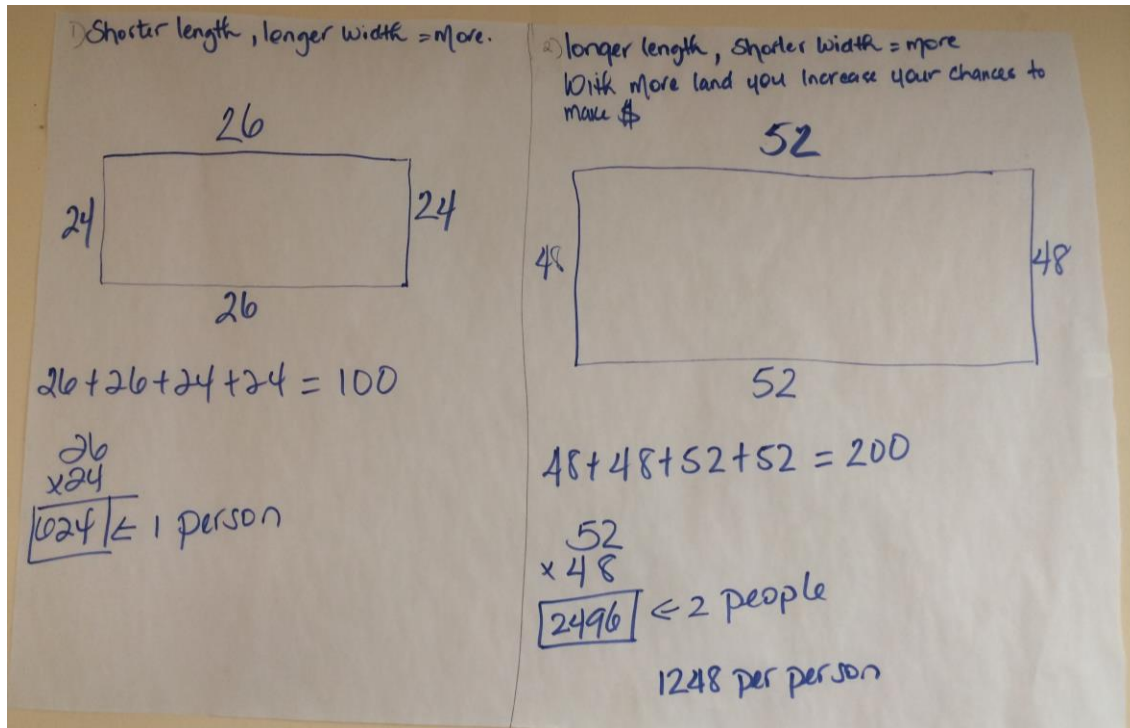 1) Shorter length, longer width = more.
26
24
24
26
26+26+24+24 = 100
26
x24
624 ← 1 person
2) longer length, shorter width = more
With more land you increase your chances to
make $
52
48
48
52
48+48+52+52 = 200
52
x 48
2496 ← 2 people
1248 per person